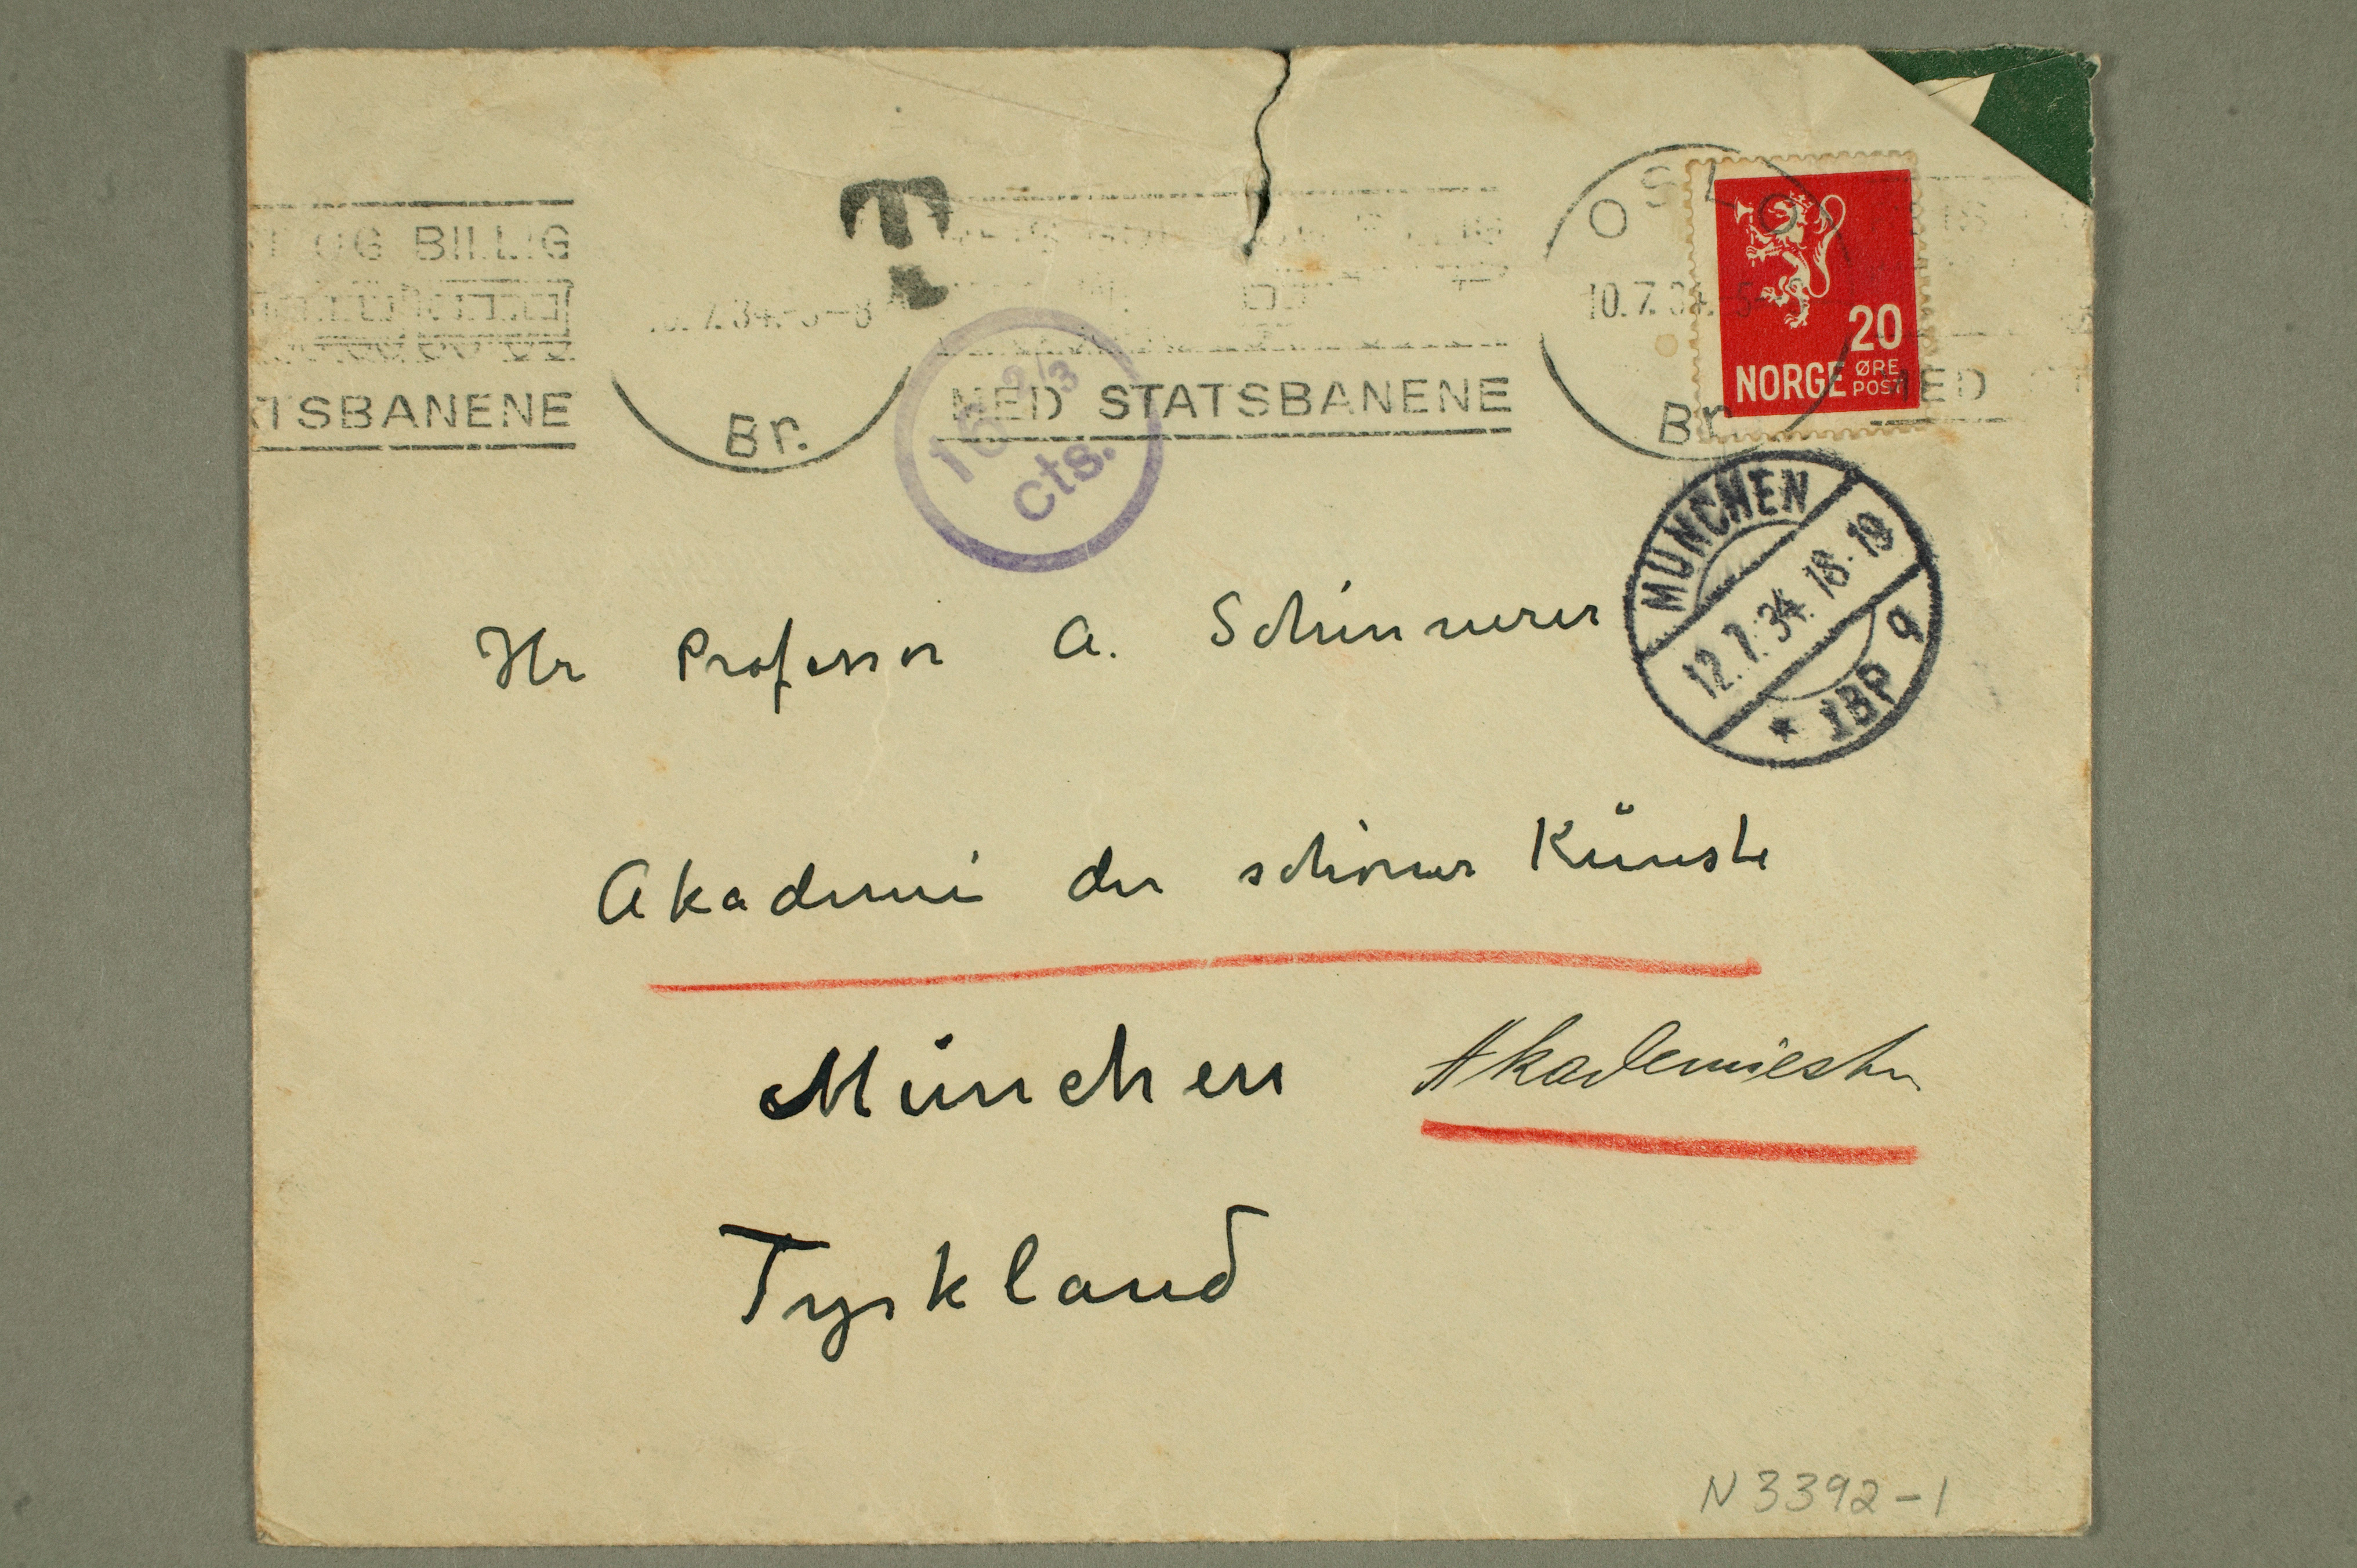 OG BILLIG
TSBANENE
7.34.
Br.
T
16 2/3
cts.
MED STATSBANENE
OSLO
10.7.34.
Br.
MED
20
NORGE ØRE
POST
MÜNCHEN
12.7.34. 18-19
* 1BP q
Hr Professor A. Schinnerer
Akademi der schönen Künste
München Akademiestr
Tyskland
N 3392-1